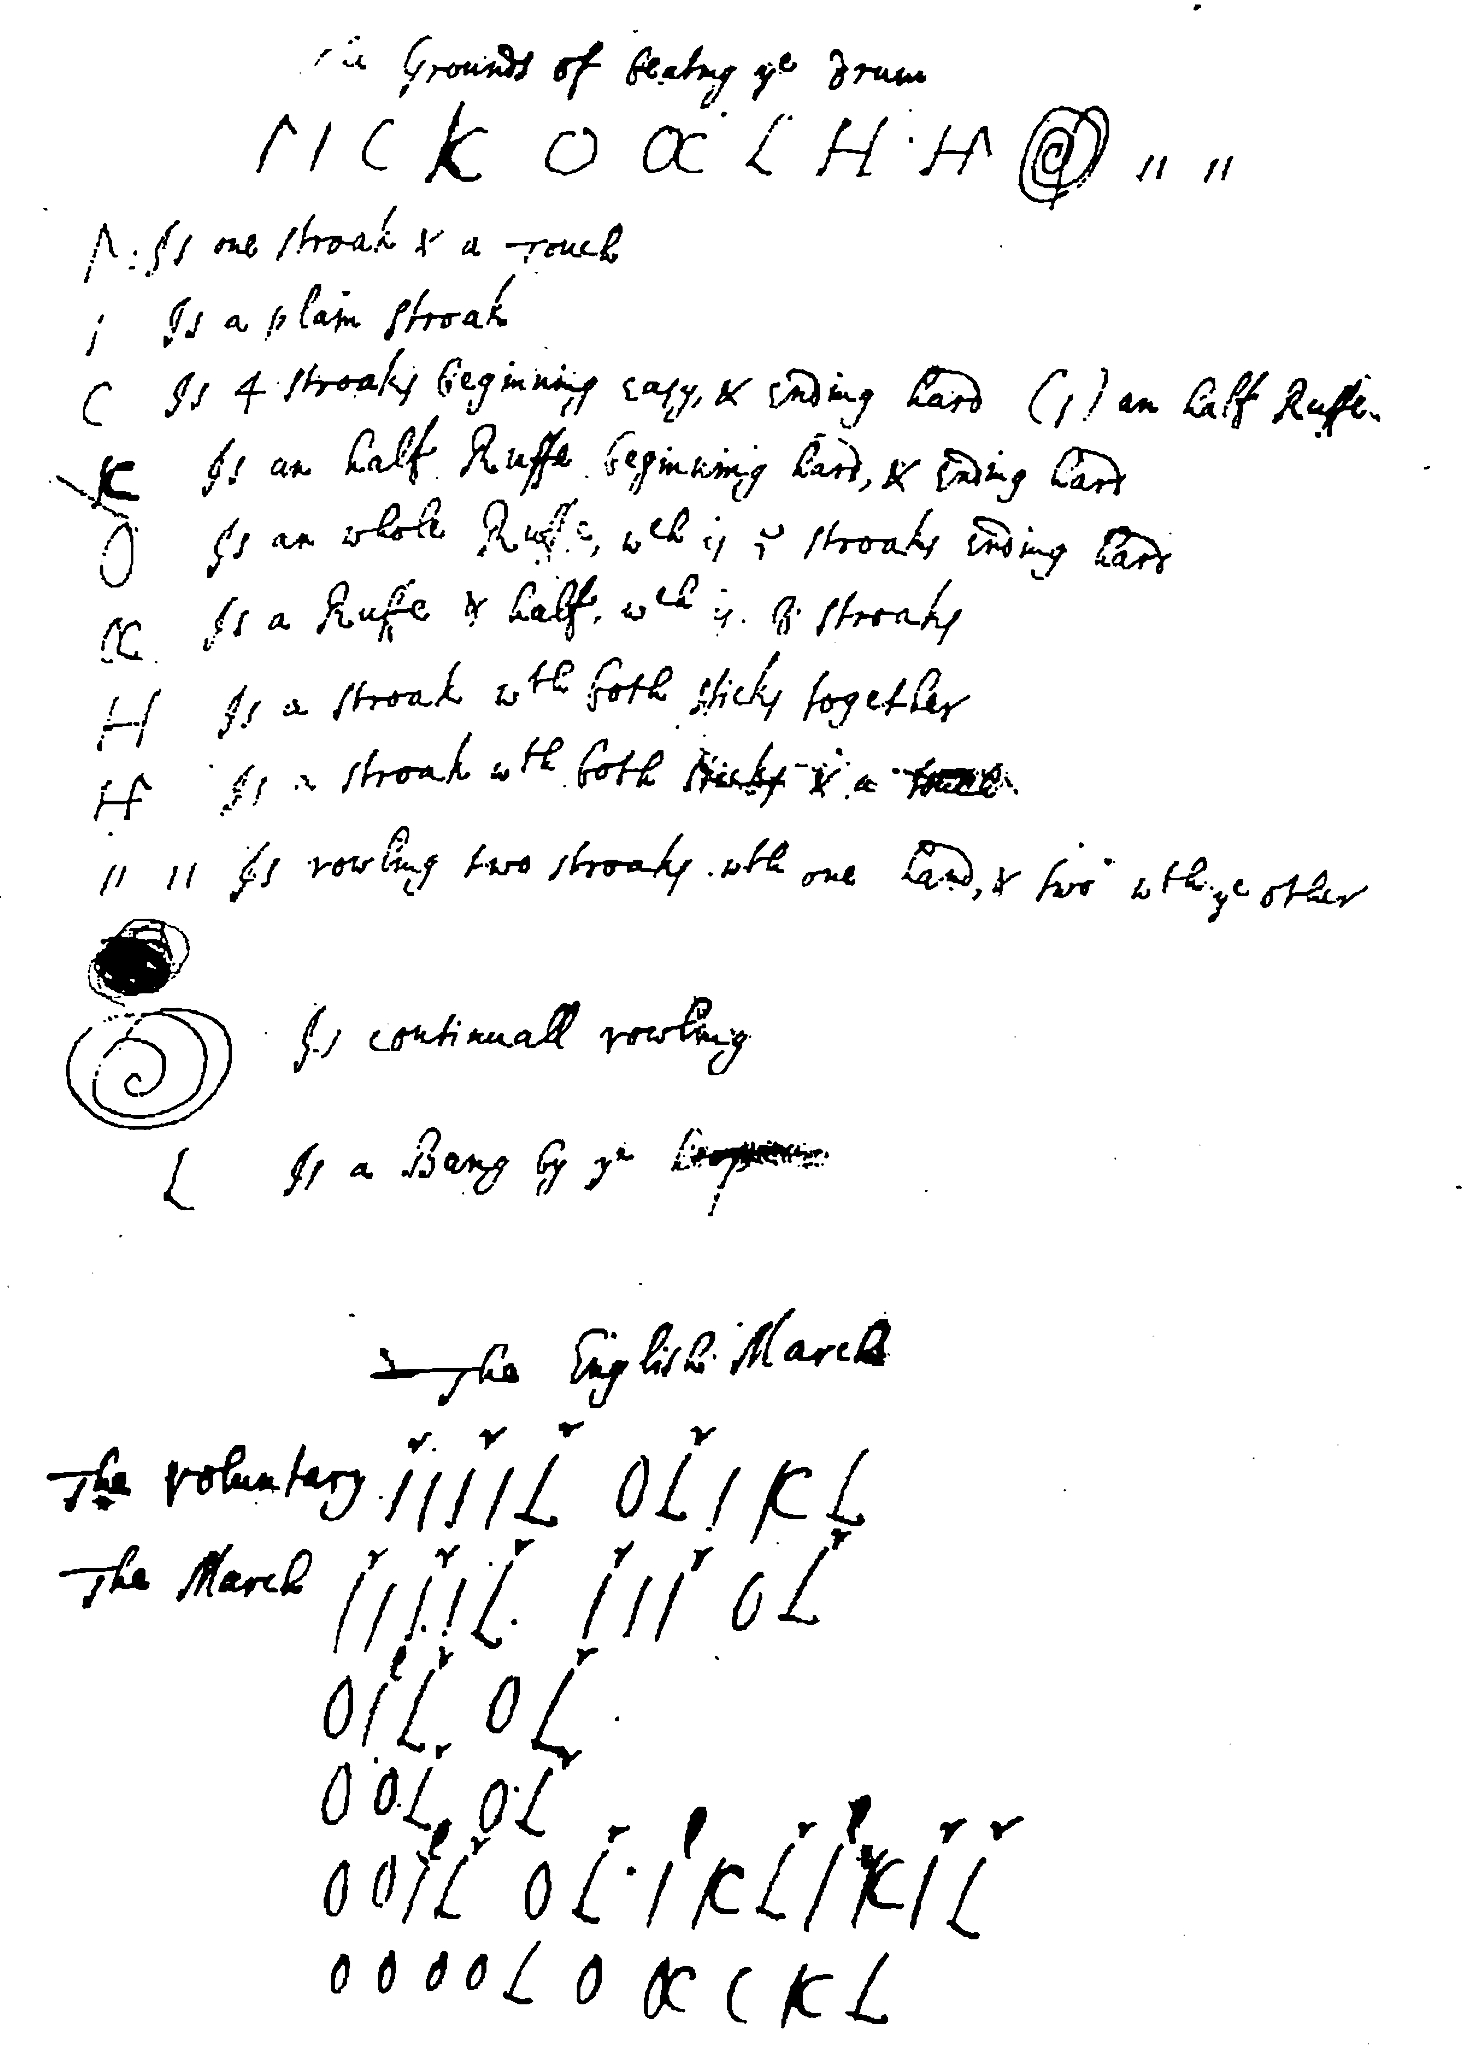 The Grounds of beating ye drum
Λ I C K O OC L H HΛ @ " "
Λ: Is one stroak & a Touch
I Is a plain stroak
C Is 4 stroaks beginning easy, & Ending hard (s) an half Ruffe.
K Is an half Ruffe beginning hard, & Ending hard
O Is an whole Ruffe, wch is stroaks Ending hard
OC Is a Ruffe & half. wch is. 8 stroaks
H Is a stroak wth both sticks together
HΛ Is a stroak wth both sticks & a touch
" " Is rowling two stroaks wth one hand, & two wth ye other
Is continuall rowling
L Is a Bang by ye
The English March
r r r r
The voluntary I I I I L O L I K L
r r r r r r
The March I I I I L. I I I O L
r r
O I L O L
r r
O O L O L
r r r r r
O O I L O L I K L I K I L
O O O O L O OC C K L